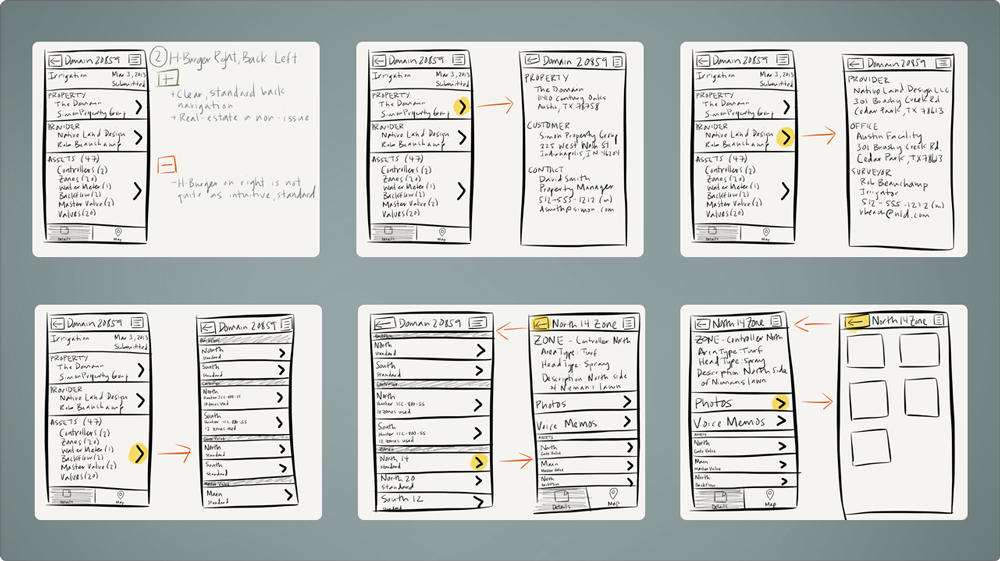 Domain 20859
Irrigation Mar 3, 2013
Submitted
PROPERTY
The Domain
Simon Property Group
PROVIDER
Native Land Design
Rob Beauchamp
ASSETS (47)
Controllers (2)
Zones (20)
Water Meter (1)
Backflow (2)
Master Valve (2)
Valves (20)
Details Map
2 H-Burger Right, Back Left
+
+ Clear, standard back
navigation
+ Real-estate a non-issue
-
- H-Burger on right is not
quite as intuitive, standard
Domain 20859
Irrigation Mar 3, 2013
Submitted
PROPERTY
The Domain
Simon Property Group
PROVIDER
Native Land Design
Rob Beauchamp
ASSETS (47)
Controllers (2)
Zones (20)
Water Meter (1)
Backflow (2)
Master Valve (2)
Valves (20)
Details Map
Domain 20859
PROPERTY
The Domain
1140 Century Oaks
Austin, TX 78758
CUSTOMER
Simon Property Group
225 West Wash St
Indianapolis, IN 46204
CONTACT
David Smith
Property Manager
512-555-1212 (m)
dsmith@simon.com
Domain 20859
Irrigation Mar 3, 2013
Submitted
PROPERTY
The Domain
Simon Property Group
PROVIDER
Native Land Design
Rob Beauchamp
ASSETS (47)
Controllers (2)
Zones (20)
Water Meter (1)
Backflow (2)
Master Valve (2)
Valves (20)
Details Map
Domain 20859
PROVIDER
Native Land Design LLC
301 Brushy Creek Rd
Cedar Park, TX 78613
OFFICE
Austin Facility
301 Brushy Creek Rd.
Cedar Park, TX 78613
SURVEYOR
Rob Beauchamp
Irrigator
512-555-1212 (m)
Domain 20859
Irrigation Mar 3, 2013
Submitted
PROPERTY
The Domain
Simon Property Group
PROVIDER
Native Land Design
Rob Beauchamp
ASSETS (47)
Controllers (2)
Zones (20)
Water Meter (1)
Backflow (2)
Master Valve (2)
Valves (20)
Details Map
Domain 20859
Backflow
North
Standard
South
Standard
Controller
North
Hunter ICC-800-SS
10 zones used
South
Hunter ICC-800-SS
12 zones used
Gate Valve
North
Standard
South
Standard
Master Valve
Main
Standard
Domain 20859
Backflow
North
Standard
South
Standard
Controller
North
Hunter ICC-800-SS
10 zones used
South
Hunter ICC-800-SS
12 zones used
Zones
North 14
Standard
North 20
Standard
South 12
North 14 Zone
ZONE - Controller North
Area Type: Turf
Head Type: Spray
Description: North side
of Niemans Lawn
Photos
Voice Memos
ASSETS
North
Gate Valve
Main
Master Valve
North
Backflow
Details Map
North 14 Zone
ZONE - Controller North
Area Type: Turf
Head Type: Spray
Description: North side
of Niemans Lawn
Photos
Voice Memos
ASSETS
North
Gate Valve
Main
Master Valve
North
Backflow
Details Map
North 14 Zone